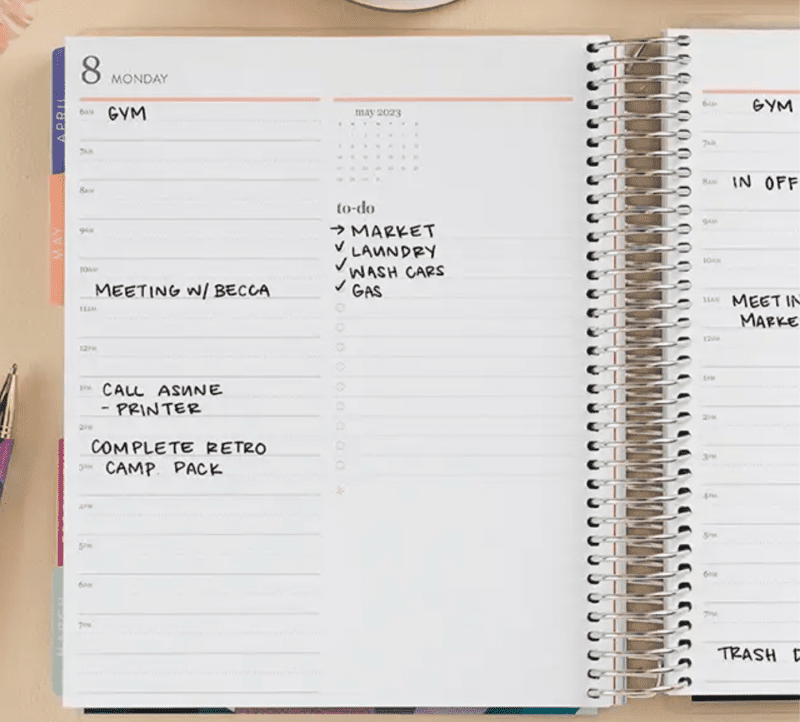 8 MONDAY
6AM GYM
7AM
8AM
9AM
10AM
MEETING W/ BECCA
11AM
12PM
1PM CALL ASUNE
- PRINTER
2PM
COMPLETE RETRO
3PM CAMP. PACK
4PM
5PM
6PM
7PM
may 2023
to-do
→ MARKET
✓ LAUNDRY
✓ WASH CARS
✓ GAS
APRIL
MAY
MARCH
6AM GYM
7AM
8AM IN OFF
9AM
10AM
11AM MEETIN
MARKE
12PM
1PM
2PM
3PM
4PM
5PM
6PM
7PM
TRASH D